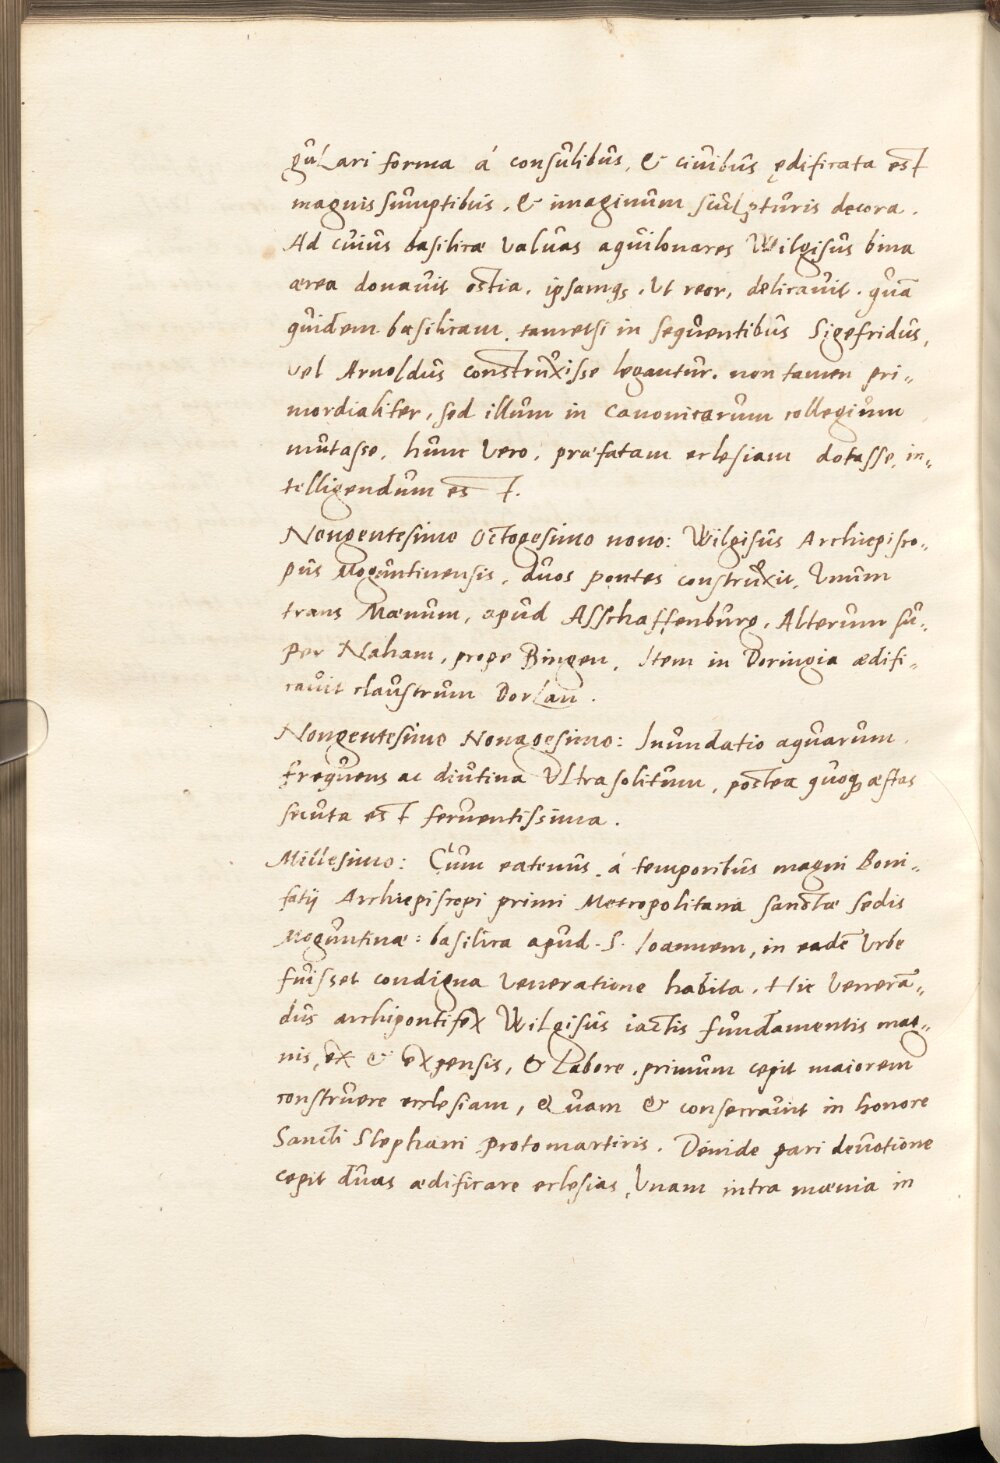 gulari forma á consulibus, & ciuibus ędificata est
magnis sumptibus, & imaginum sculpturis decora.
Ad cuius basilicæ valuas aquilonares Wilgisus bina
ærea donauit ostia, ipsamq3, ut reor, delicauit. quã
quidem basilicam, tametsi in sequentibus Sigefridus,
vel Arnoldus construxisse legantur. non tamen pri„
mordialiter, sed illum in canonicarum collegium
mutasse, hunc vero, præfatam eclesiam dotasse, in„
telligendum est.
Nongentesimo Octogesimo nono: Wilgisus Archiepisco„
pus Moguntinensis, duos pontes construxit, Vnum
trans Mænum, apud Asschaffenburg, Alterum su„
per Naham, prope Bingen, Item in Doringia ædifi„
cauit claustrum Dorlau.
Nongentesimo Nonagesimo: Inundatio aquarum
frequens ac diutina Vltrasolitum, postea quoq3 æstas
secuta est feruentissima.
Millesimo: Cum eatenus, á temporibus magni Boni„
fatij Archiepiscopi primi Metropolitana sanctæ sedis
Moguntinæ: basilica apud. S. Ioannem, in eadẽ Vrbe
fuisset condigna veneratione habita. Hic venerã„
dus archipontifex Wilgisus iactis fundamentis mag„
nis, ex & expensis, & Labore, primum cepit maiorem
construere ecclesiam, Quam & consecrauit in honore
Sancti Stephani protomartiris. Deinde pari deuotione
cepit duas ædificare eclesias, Vnam intra mœnia in